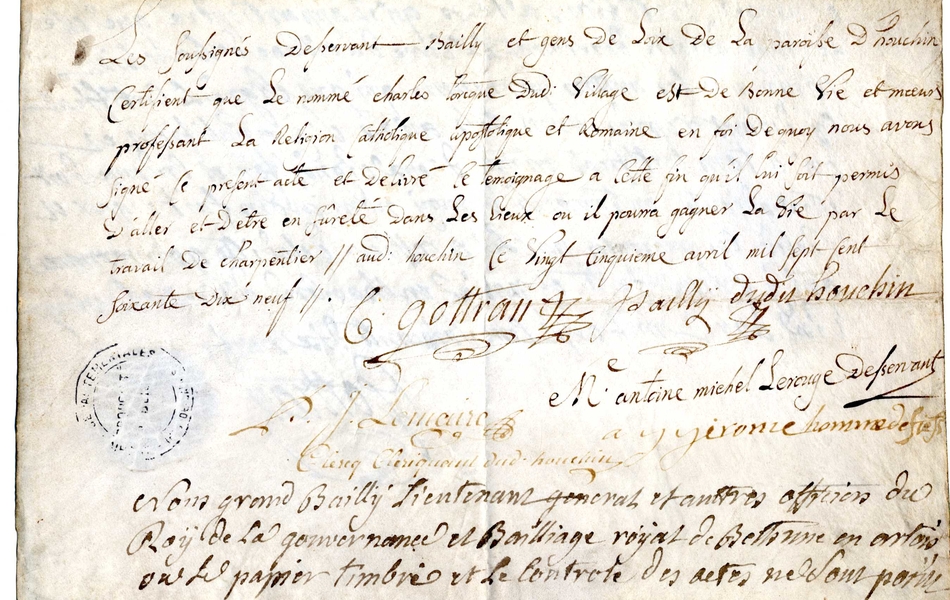 Les Soussignés Deservant Bailly et gens De Loix De La paroisse D'houchin
Certifient que Le nommé charles Dud: Village est De Bonne Vie et mœurs
professant La Religion Catholique apostolique et Romaine en foi Dequoy nous avons
signé Ce present acte et Délivré Ce temoignage a Cette fin qu'il lui soit permis
D'aller et D'être en sûreté Dans Les Lieux ou il pourra gagner La Vie par Le
travail De charpentier // aud: houchin Ce Vingt Cinquieme avril mil sept Cent
soixante Dix neuf //.
C. gottran Bailly dudit houchin
Mc antoine michel Lerouge Deservant
P. J. Lemaire
a j jerome homme de fief
Clercq dud: houchin
Nous grand Bailly Lieutenant general et auttres officiers du
Roÿ de la gouvernance et Bailliage roÿal de Bethune en artois
ou Le papier timbré et Le Controle des actes ne sont point